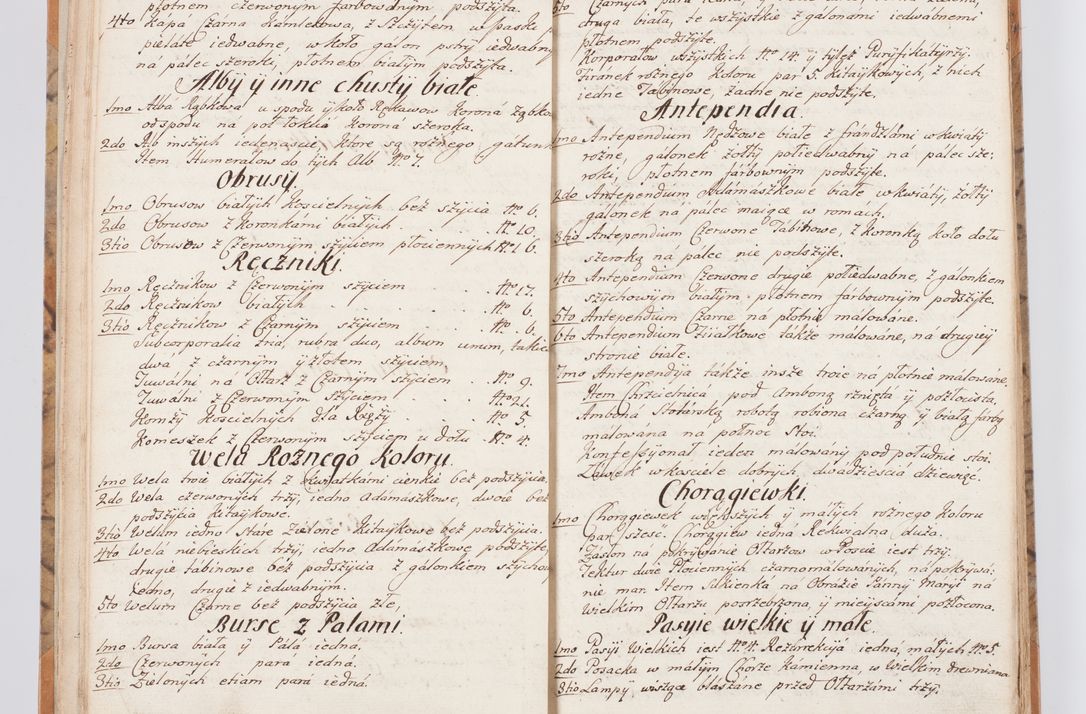 płotnem czerwonym farbowanym podszyta.
4to Kapa Czarna Kamlotowa, z Szczytem w paski
pielate iedwabne, w koło galon pstry iedwabny
na palec szeroki, płotnem białym podszyta.
Alby y inne chusty białe
1mo Alba Rąbkowa u spodu y koło Rękawow Korona ząbkowa
od spodu na poł łokcia Korona szeroka.
2do Alb inszych iedenascie, ktore są rożnego gatunku
Item Humerałow do tych Alb Nro 7.
Obrusy.
1mo Obrusow białych Koscielnych bez szycia Nro 6.
2do Obrusow z Koronkami białych . Nro 10.
3tio Obrusow z Czerwonym szyciem płociennych Nro 16.
Ręczniki.
1mo Ręcznikow z Czerwonym szyciem . Nro 17.
2do Ręcznikow białych . . . Nro 6.
3tio Ręcznikow z Czarnym szyciem . . Nro 6.
Subcorporalia tria, rubra duo, album unum, także
dwa z czarnym y złotem szyciem,
Tuwalni na Ołtarz z Czarnym szyciem . Nro 9.
Tuwalni z Czerwonym szyciem . . Nro 21.
Komży Koscielnych dla Xięży . . Nro 5.
Komeszek z Czerwonym szyciem u dołu . Nro 4.
Wela Rożnego Koloru.
1mo Wela troie białych z Kwiatkami cienkie bez podszycia,
2do Wela czerwonych trzy, iedno Adamaszkowe, dwoie bez
podszycia kitaykowe.
3tio Welum iedno Stare Zielone Kitaykowe bez podszycia.
4to Wela niebieskich trzy, iedno Adamaszkowe podszyte,
drugie tabinowe bez podszycia z galonkiem szychow
iedno, drugie z iedwabnym.
5to Welum Czarne bez podszycia złe,
Burse z Palami.
1mo Bursa biała y Pala iedna,
2do Czerwonych para iedna.
3tio Zielonych etiam para iedna.
5to Czarnych para iedna,
druga biała, te wszystkie z galonami iedwabnemi
płotnem podszyte.
Korporałow wszystkich Nro 14. y tyleż Puryfikatyrzy.
Firanek rożnego Koloru par 5 kitaykowych, z nich
iedne Tabinowe, żadne nie podszyte.
Antependia.
1mo Antependium Nędzowe białe z frandzlami w kwiaty
rożne, galonek żołty połiedwabny na palec sze:
roki, płotnem farbownym podszyte.
2do Antependium Adamaszkowe białe w kwiaty, żołty
galonek na palec maiące w romach.
3tio Antependium Czerwone Tabinowe, z Koronką koło dołu
szeroką na palec nie podszyte.
4to Antependium Czerwone drugie połiedwabne, z galonkiem
szychowym białym . płotnem farbownym podszyte.
5to Antependium Czarne na płotnie malowane.
6to Antependium Fiiałkowe także malowane, na drugiey
stronie białe.
7mo Antependya także insze troie na płotnie malowane,
Item Chrzcielnica pod Amboną rznięta y pozłocista,
Ambona Stolarską robotą robiona czarną y białą farbą
malowana na połnoc stoi.
Konfessyonał ieden malowany pod południe stoi.
Ławek w kosciele dobrych dwadziescia dziewięć.
Chorągiewki.
1mo Chorągiewek większych y małych rożnego Koloru
par szesć. Chorągiew iedna Rekwialna duża.
Zasłon na pokrywanie Ołtarzow w Poscie iest trzy.
Tektur dwie Płociennych czarno malowanych, na pokrywa:
nie mar. Item Sukienka na Obrazie Panny Maryi na
Wielkim Ołtarzu posrzebrzona, y mieyscami pozłocona.
Pasyie wielkie y małe.
1mo Pasyi Wielkich iest Nro 4. Rezurrekcyia iedna, małych Nro 5
2do Posacka w małym Chorze Kamienna, w Wielkim drewniana
3tio Lampy wiszące blaszane przed Ołtarzami trzy.